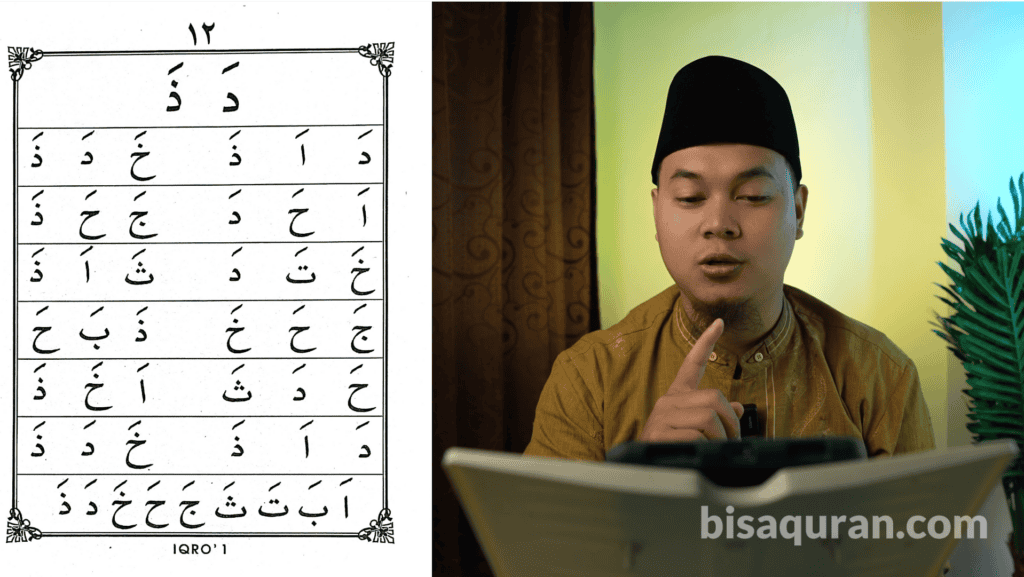 ١٢
دَ ذَ
دَ اَ ذَ خَ دَ ذَ
اَ حَ دَ جَ حَ ذَ
خَ تَ دَ ثَ اَ ذَ
جَ حَ خَ ذَ بَ حَ
حَ دَ ثَ اَ خَ ذَ
دَ اَ ذَ خَ دَ ذَ
اَ بَ تَ ثَ جَ حَ خَ دَ ذَ
IQRO' 1
bisaquran.com